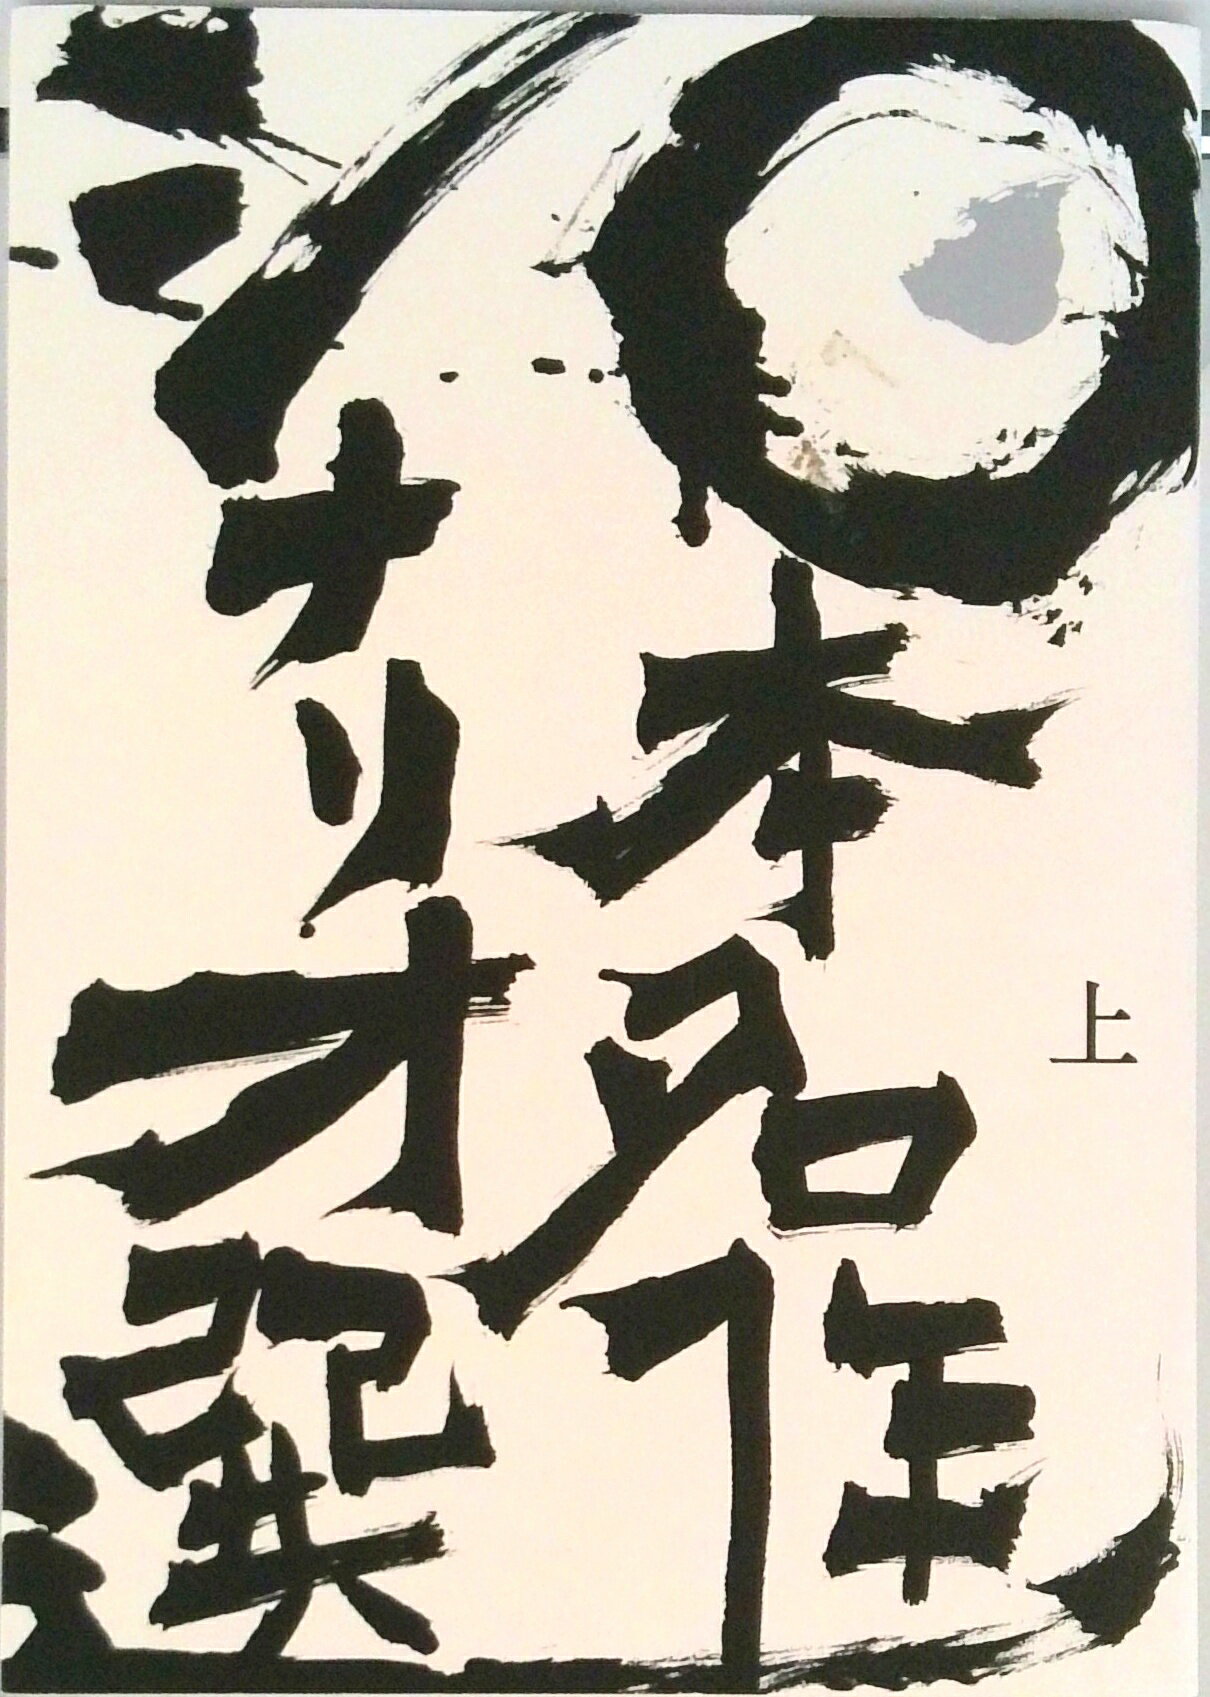 日本名作
シナリオ選
上